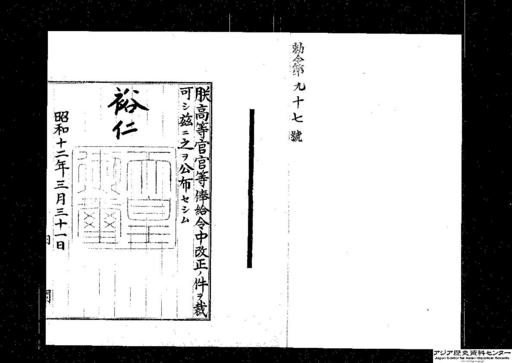 勅令第九十七號
朕高等官官等俸給令中改正ノ件ヲ裁
可シ茲ニ之ヲ公布セシム
裕仁
天皇御璽
昭和十二年三月三十一日
アジア歴史資料センター
Japan Center for Asian Historical Records